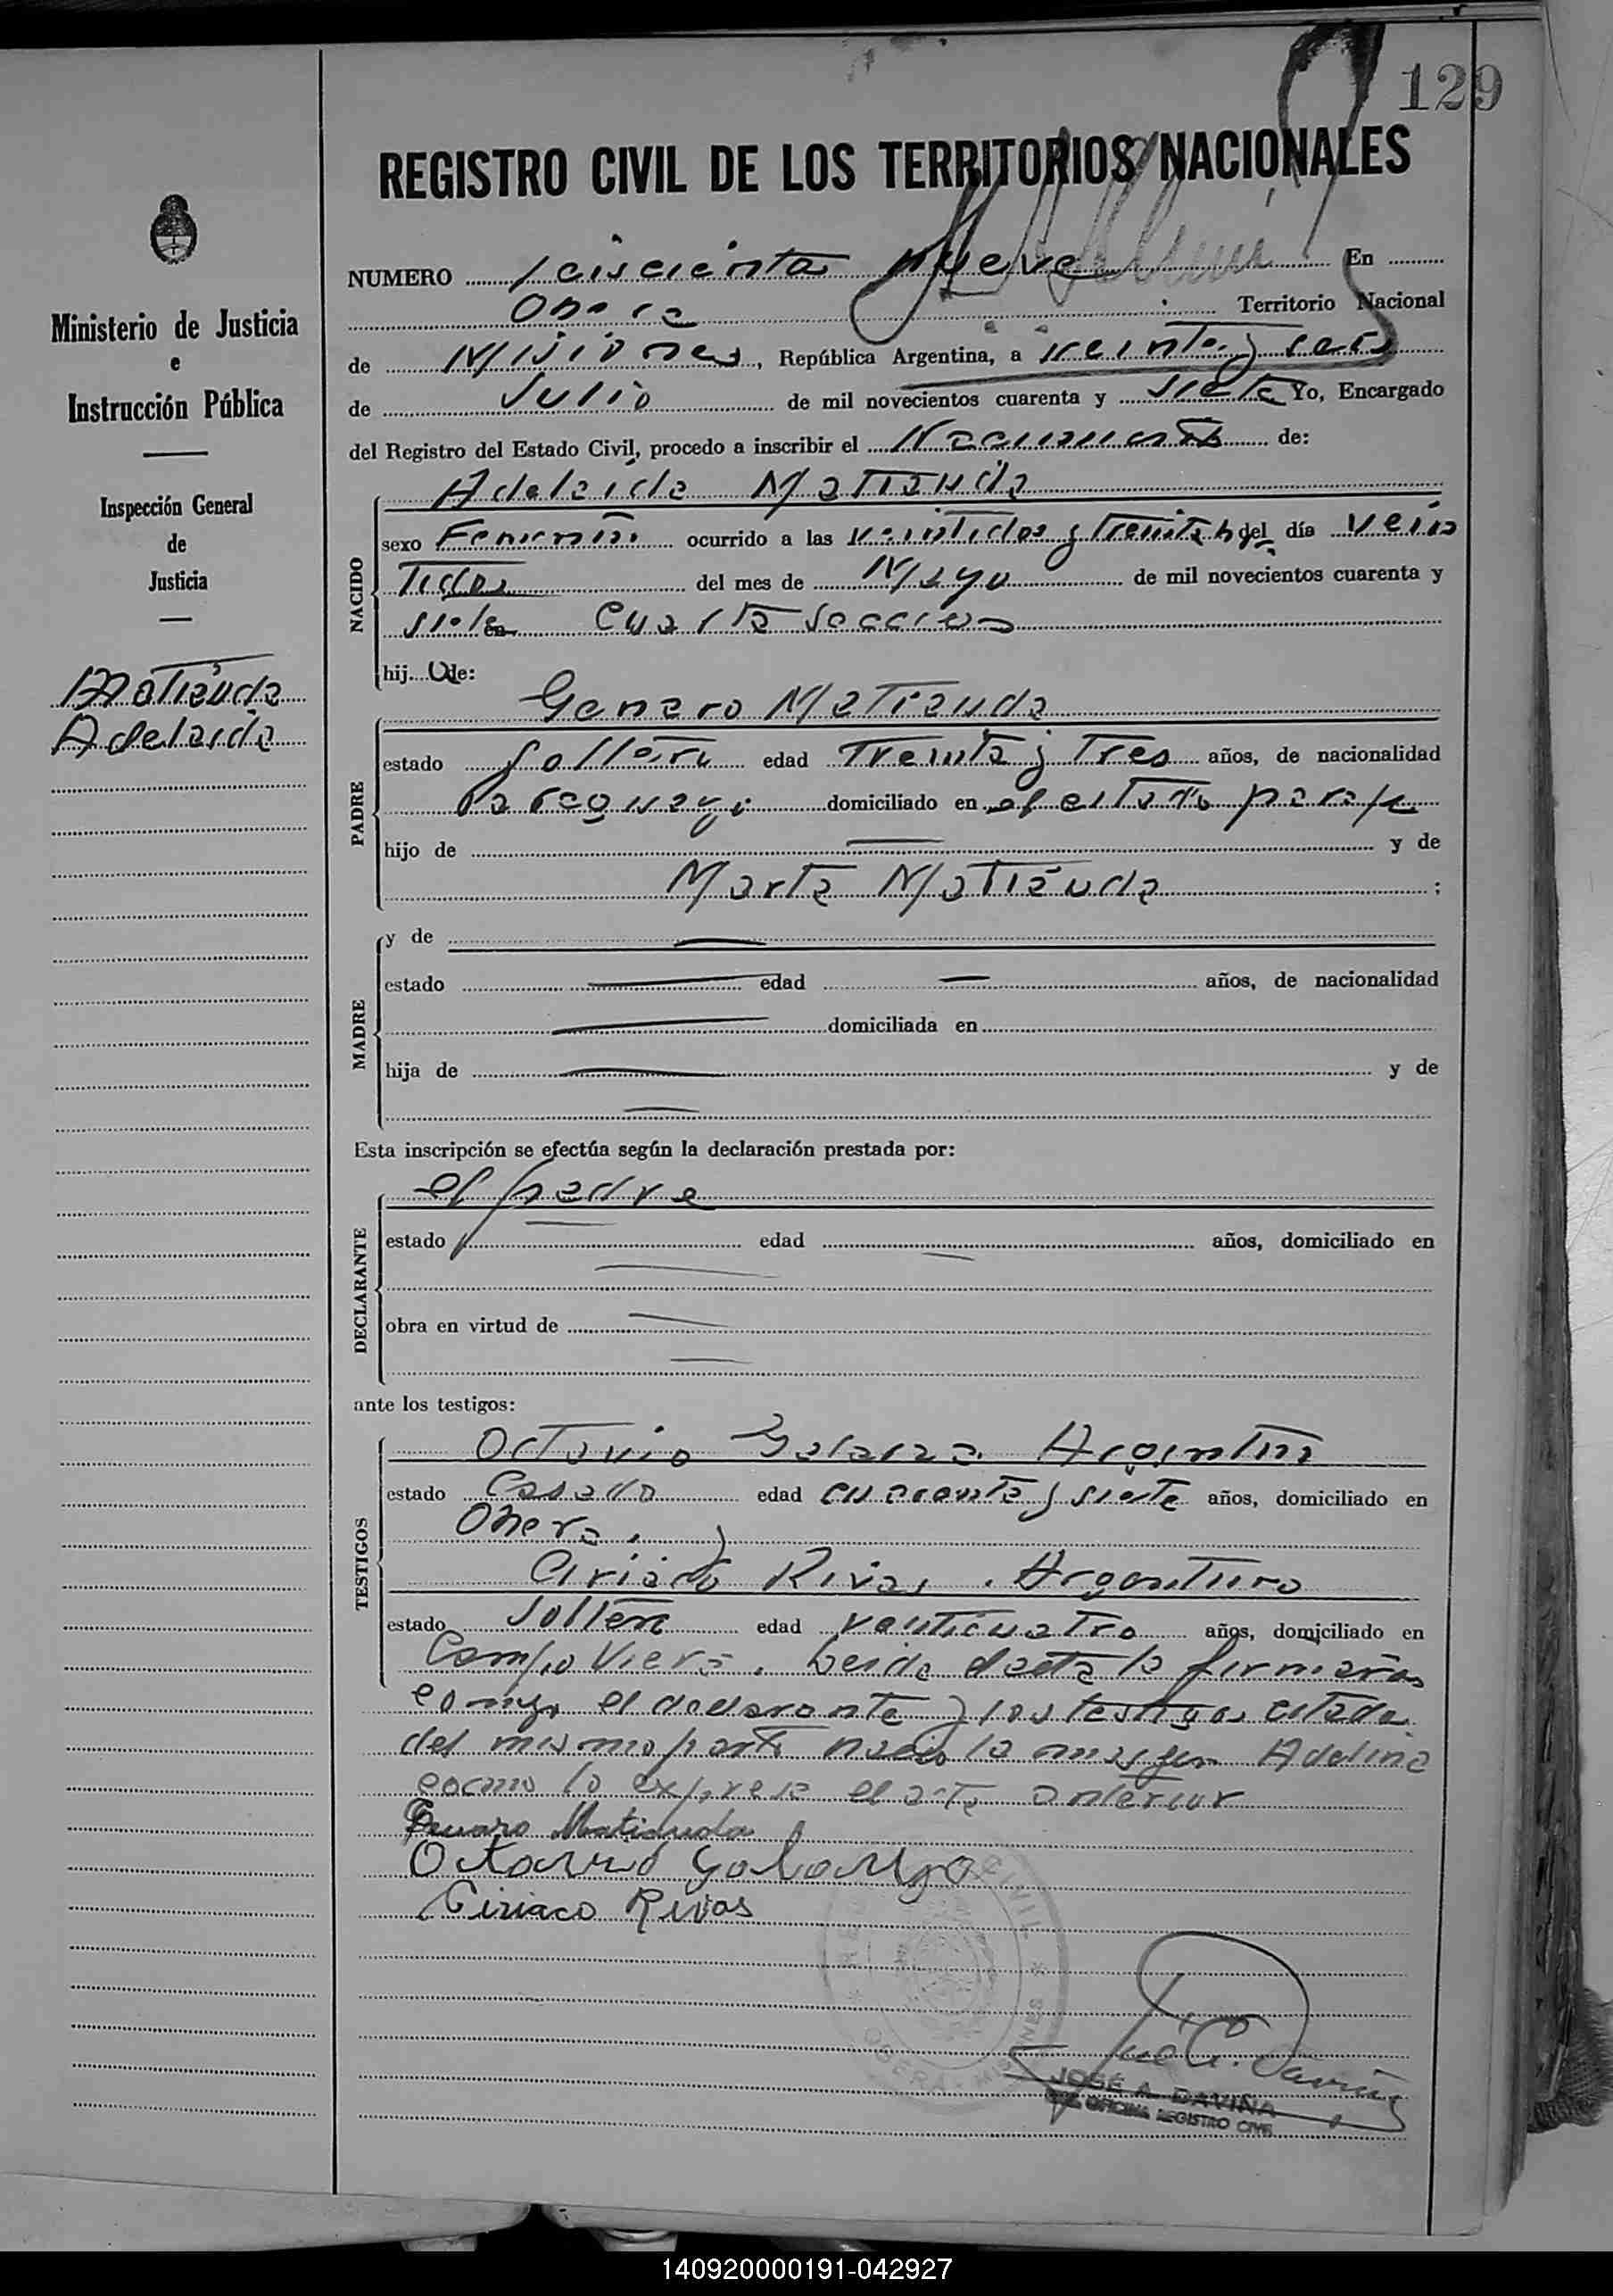 129
REGISTRO CIVIL DE LOS TERRITORIOS NACIONALES
NUMERO seiscientos nueve En
Obera Territorio Nacional
de Misiones, República Argentina, a veinte y seis
de Julio de mil novecientos cuarenta y siete Yo, Encargado
del Registro del Estado Civil, procedo a inscribir el Nacimiento de:
Ministerio de Justicia
e
Instrucción Pública
Inspección General
de
Justicia
Matiauda
Adelaida
NACIDO
Adelaida Matiauda
sexo Femenino ocurrido a las veintidos y treinta h del día vein
tidos del mes de Mayo de mil novecientos cuarenta y
siete en Cuarta Seccion
hij a de:
PADRE
Genaro Matiauda
estado soltero edad treinta y tres años, de nacionalidad
paraguayo domiciliado en el citado paraje
hijo de — y de
Marta Matiauda ;
MADRE
y de —
estado — edad — años, de nacionalidad
— domiciliada en
hija de — y de
—
Esta inscripción se efectúa según la declaración prestada por:
DECLARANTE
el padre
estado — edad — años, domiciliado en
—
obra en virtud de —
—
ante los testigos:
TESTIGOS
Octavio Galarza. Argentino
estado Casado edad cuarenta y siete años, domiciliado en
Obera. y
Ciriaco Rivas. Argentino
estado soltero edad veinticuatro años, domiciliado en
Campo Viera. Leida el acta la firmaron
conmigo el declarante y los testigos citados
del mismo parto nacio la Adelina
como lo expresa el acta anterior
Genaro Matiauda
Octavio Galarza
Ciriaco Rivas
REGISTRO CIVIL * OBERA - MISIONES *
José A. Daviña
JOSÉ A. DAVIÑA
OFICINA REGISTRO CIVIL
140920000191-042927